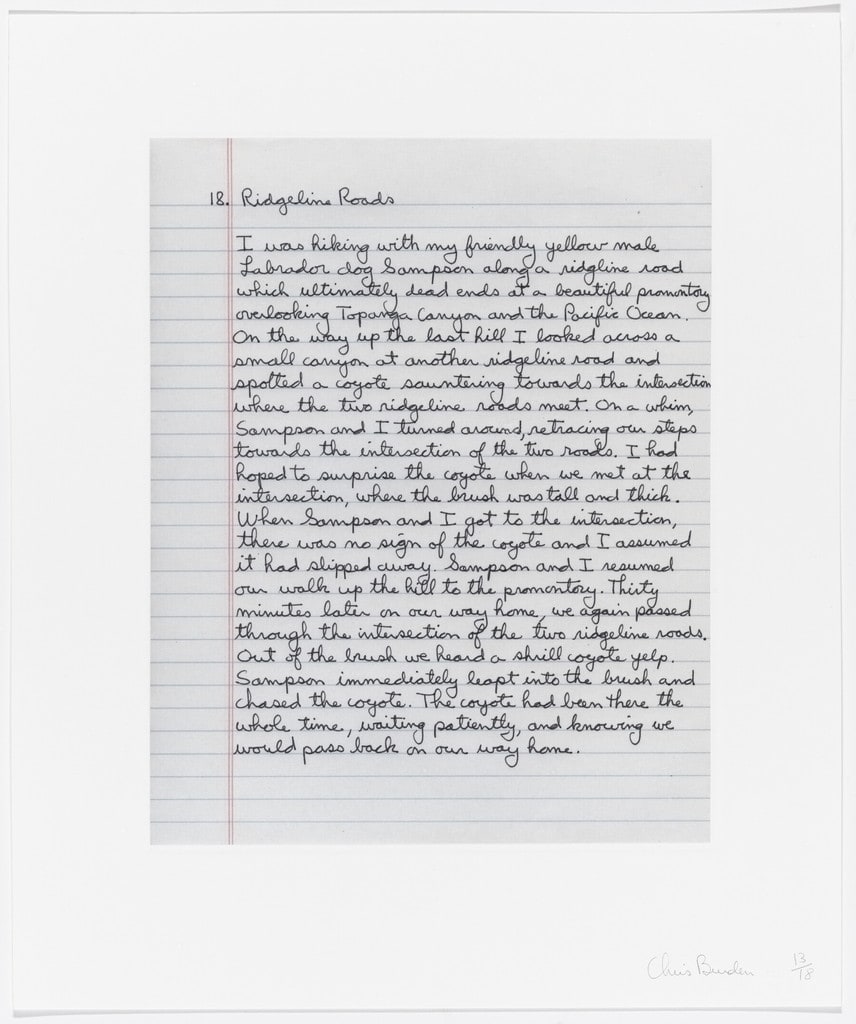 18. Ridgeline Roads
I was hiking with my friendly yellow male
Labrador dog Sampson along a ridgline road
which ultimately dead ends at a beautiful promontory
overlooking Topanga Canyon and the Pacific Ocean.
On the way up the last hill I looked across a
small canyon at another ridgeline road and
spotted a coyote sauntering towards the intersection
where the two ridgeline roads meet. On a whim,
Sampson and I turned around, retracing our steps
towards the intersection of the two roads. I had
hoped to surprise the coyote when we met at the
intersection, where the brush was tall and thick.
When Sampson and I got to the intersection,
there was no sign of the coyote and I assumed
it had slipped away. Sampson and I resumed
our walk up the hill to the promontory. Thirty
minutes later on our way home, we again passed
through the intersection of the two ridgeline roads.
Out of the brush we heard a shrill coyote yelp.
Sampson immediately leapt into the brush and
chased the coyote. The coyote had been there the
whole time, waiting patiently, and knowing we
would pass back on our way home.
Chris Burden 13/18